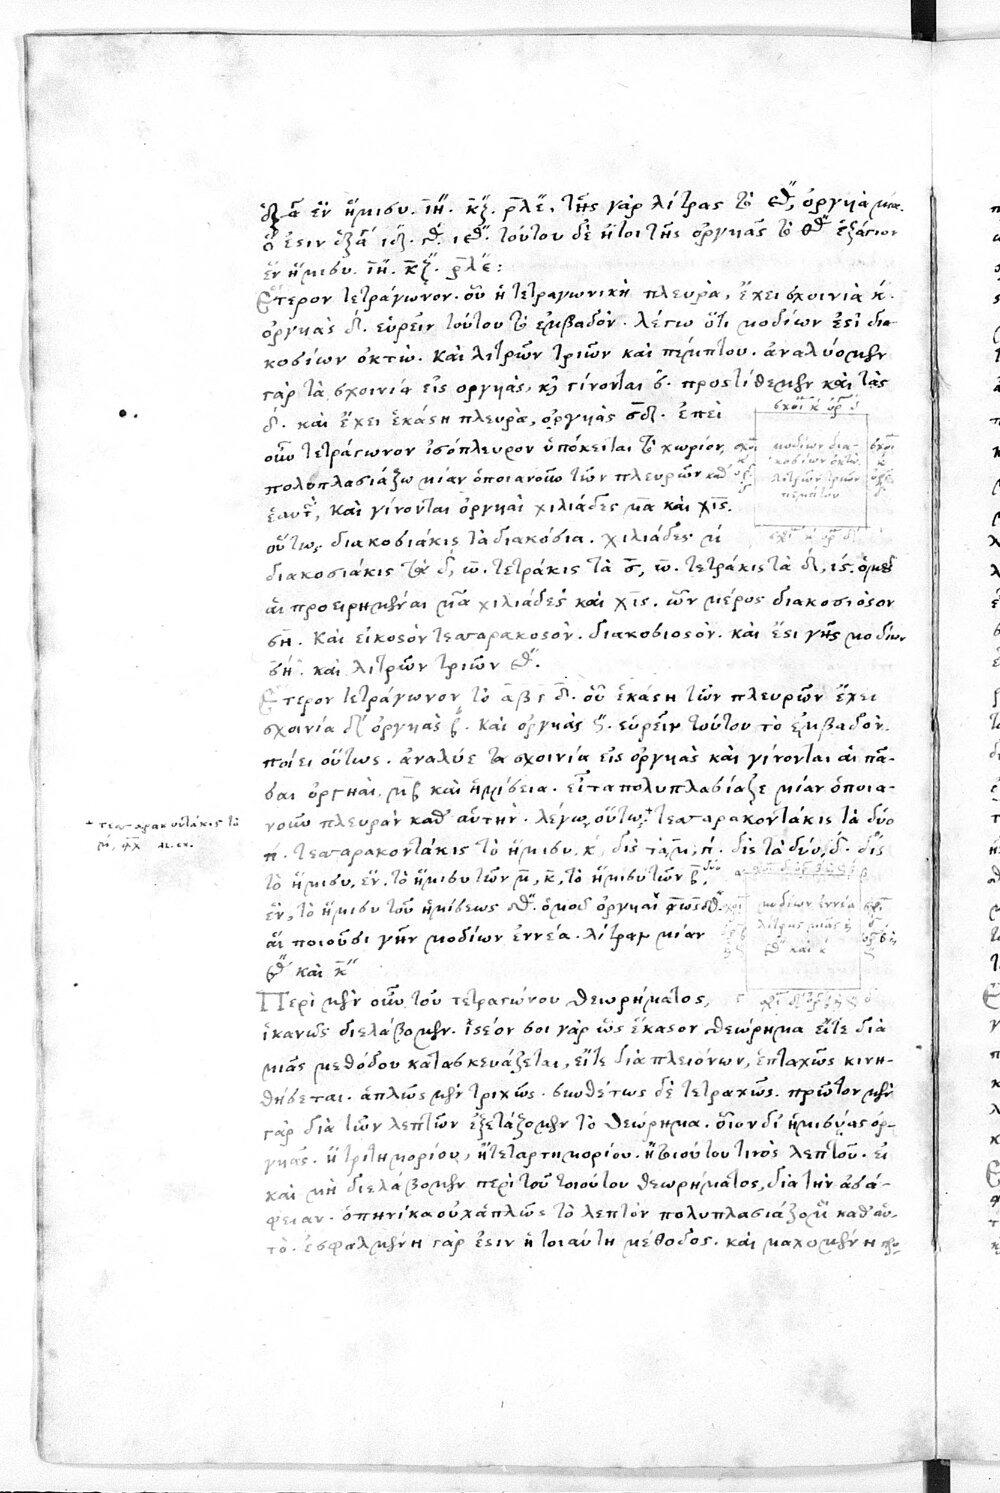 ἑξα̃ ἓν ἥμισυ. ιη̋. κζ̋. ρ̅λε̋. τῆς γὰρ λίτρας τὸ θ̋, ὀργυιὰ μία.
ὅ ἐστιν ἑξα̃
τούτου δὲ ἤτοι τῆς ὀργυιᾶς τὸ θ̋ ἑξάγιον
ἓν ἥμισυ. ιη̋. κζ̋. ρ̅λε̋:
Ἕτερον τετράγωνον. οὗ ἡ τετραγωνικὴ πλευρὰ, ἔχει σχοινία κ̅.
ὀργυιὰς δ̅. εὑρεῖν τούτου τὸ ἐμβαδόν. λέγω ὅτι μοδίων ἐστὶ δια-
κοσίων ὀκτώ. καὶ λιτρῶν τριῶν καὶ πέμπτου. ἀναλύομεν
γὰρ τὰ σχοινία εἰς ὀργυιὰς, καὶ γίνονται σ̅. προστίθεμεν καὶ τὰς
δ̅. καὶ ἔχει ἑκάστη πλευρὰ, ὀργυιὰς σ̅δ̅. ἐπεὶ
οὖν τετράγωνον ἰσόπλευρον ὑπόκειται τὸ χωρίον,
πολυπλασιάζω μίαν ὁποιανοῦν τῶν πλευρῶν καθ'
ἑαυτὴν, καὶ γίνονται ὀργυιαὶ χιλιάδες μ̅α̅ καὶ χ̅ι̅ς̅.
οὕτως διακοσιάκις τὰ διακόσια. χιλιάδες μ̅
διακοσιάκις τὰ δ̅, ω̅. τετράκις τὰ σ̅, ω̅. τετράκις τὰ δ̅, ι̅ς̅. ὁμοῦ
αἱ προειρημέναι μ̅α̅ χιλιάδες καὶ χ̅ι̅ς̅. ὧν μέρος διακοσιοστὸν
σ̅η̅. καὶ εἰκοστὸν τεσσαρακοστὸν. διακοσιοστὸν. καὶ ἔστι γῆς μοδίων
σ̅η̅. καὶ λιτρῶν τριῶν
Ἕτερον τετράγωνον τὸ α̅β̅γ̅δ̅. οὗ ἑκάστη τῶν πλευρῶν ἔχει
σχοινία δ̅ ὀργυιὰς β̅. καὶ ὀργυιᾶς
εὑρεῖν τούτου τὸ ἐμβαδόν.
ποίει οὕτως. ἀνάλυε τὰ σχοινία εἰς ὀργυιὰς καὶ γίνονται αἱ πᾶ-
σαι ὀργυιαὶ. μ̅β̅ καὶ ἡμίσεια. εἶτα πολυπλασίαζε μίαν ὁποια-
νοῦν πλευρὰν καθ' αὑτήν. λέγω οὕτως+ τεσσαρακοντάκις τὰ δύο
π̅. τεσσαρακοντάκις τὸ ἥμισυ, κ̅, δὶς τὰ μ̅, π̅. δὶς τὰ δύο, δ̅. δὶς
τὸ ἥμισυ, ἕν. τὸ ἥμισυ τῶν μ̅, κ̅, τὸ ἥμισυ τῶν β̅
ἓν, τὸ ἥμισυ τοῦ ἡμίσεως δ̋. ὁμοῦ ὀργυιαὶ
αἳ ποιοῦσι γῆν μοδίων ἐννέα. λίτραν μίαν
θ̋ καὶ κ̋
Περὶ μὲν οὖν τοῦ τετραγώνου θεωρήματος,
ἱκανῶς διελάβομεν. ἰστέον σοι γὰρ ὡς ἕκαστον θεώρημα εἴτε διὰ
μιᾶς μεθόδου κατασκευάζεται, εἴτε διὰ πλειόνων, ἑπταχῶς κινη-
θήσεται. ἁπλῶς μὲν τριχῶς. συνθέτως δὲ τετραχῶς. πρῶτον μὲν
γὰρ διὰ τῶν λεπτῶν ἐξετάζομεν τὸ θεώρημα. οἷον δι' ἡμισείας ὀρ-
γυιᾶς. ἢ τριτημορίου, ἢ τεταρτημορίου. ἢ τοιούτου τινὸς λεπτοῦ. εἰ
καὶ μὴ διελάβομεν περὶ τοῦ τοιούτου θεωρήματος, διὰ τὴν ἀσά-
φειαν. ὁπηνίκα οὐχ ἁπλῶς τὸ λεπτὸν πολυπλασιάζομεν καθ' αὑ-
τό. ἐσφαλμένη γὰρ ἐστὶν ἡ τοιαύτη μέθοδος. καὶ μαχομένη
+ τεσσαρακοντάκις τὰ
μ̅, ͵α̅χ̅
μοδίων δια-
κοσίων ὀκτὼ
λιτρῶν τριῶν
πέμπτου
μοδίων ἐννέα
λίτρας μιᾶς
θ̋ καὶ κ̋